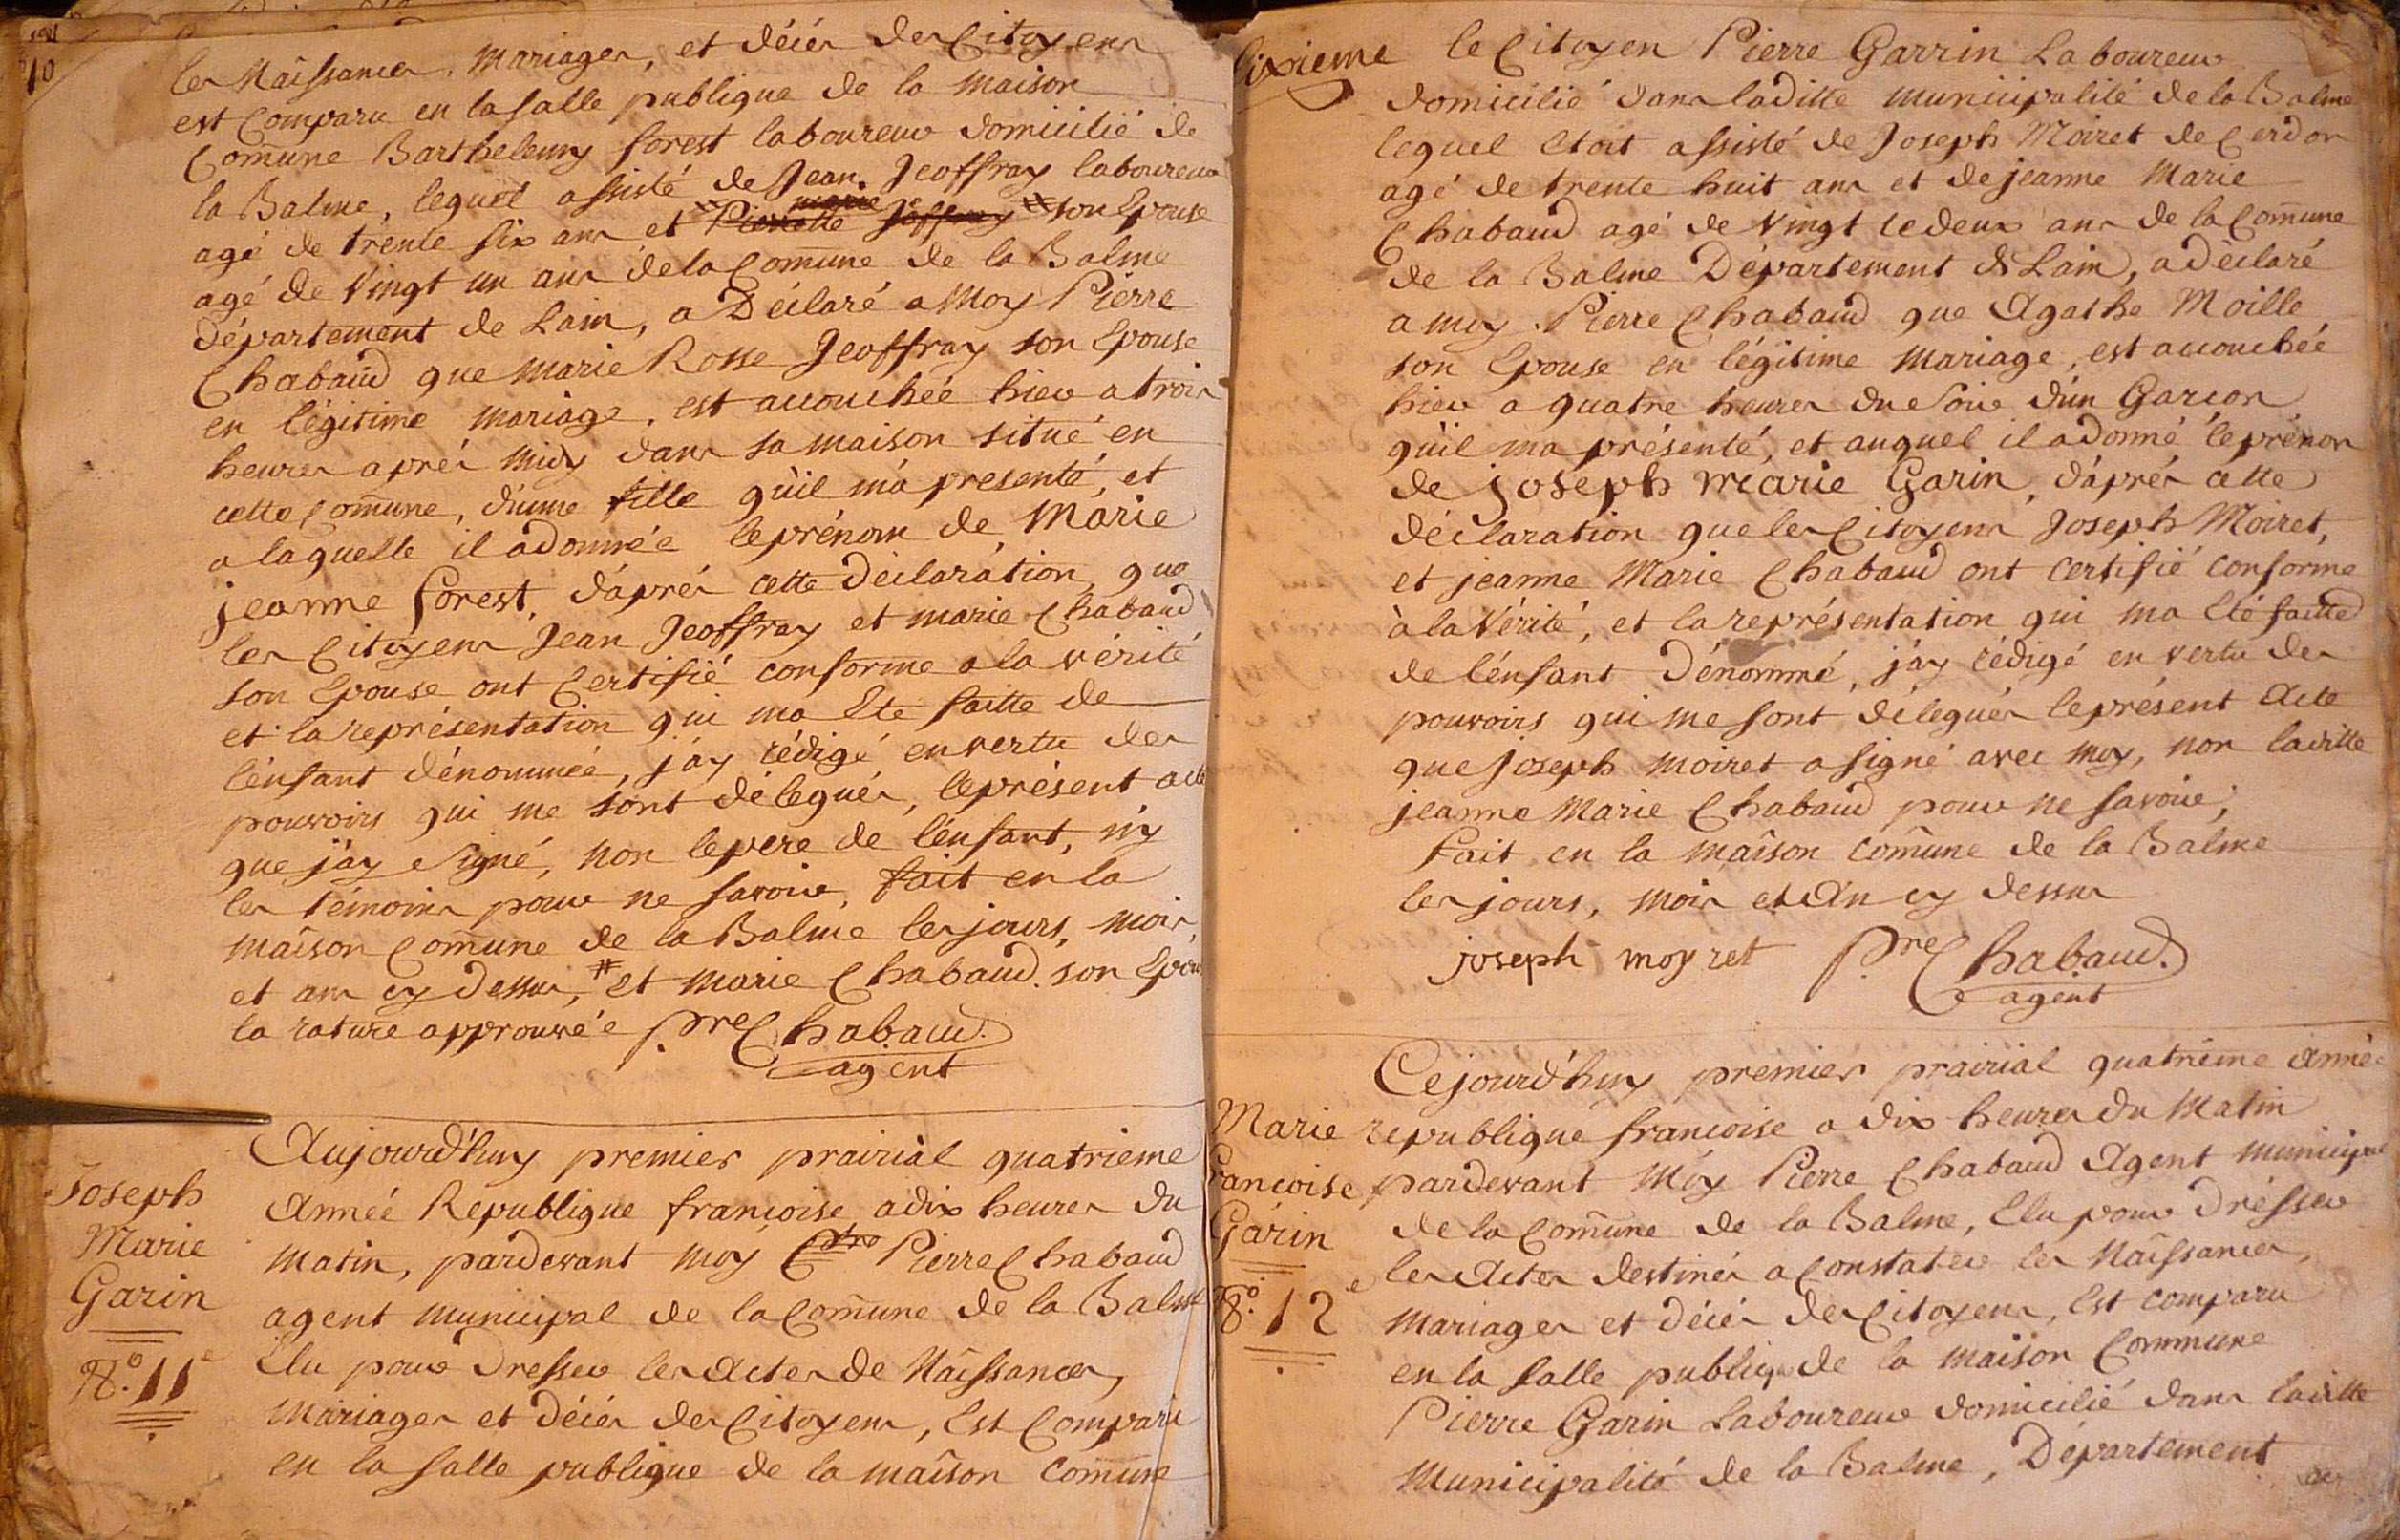 10
les Naîssances, Mariages, et décés des Citoyens
est Comparu en la salle publique de la Maison
Comune Barthelemy forest laboureur domicilié de
la Balme, lequel assisté de Jean Jeoffray laboureur
agé de trente six ans et Pierrette marie Joffray son Epouse
agé de Vingt un ans de la Comune de la Balme
département de Lain, a Déclaré a Moy Pierre
Chabaud que Marie Rosse Jeoffray son Epouse
en légitime mariage, est accouchée hier a trois
heures aprés Midy dans sa maison situé en
cette Comune, d'une fille qu'il m'a presenté, et
a laquelle il a donnée le prénom de Marie
jeanne forest, d'aprés cette Déclaration, que
les Citoyens Jean Jeoffray et marie Chabaud
son Epouse ont Certifié conforme a la vérité
et la représentation qui ma Eté faitte de
l'énfant dénommée, j'ay rédigé en vertu des
pouvoirs qui me sont délegués, le présent acte
que j'ay signé, non le pere de l'énfant, n'y
les témoins pour ne savoir, fait en la
maîson Comune de la Balme les jours, mois,
et ans cy dessus, # et marie Chabaud son Epouse
la rature approuvée pre Chabaud
agent
Joseph
Marie
Garin
No. 11e
Aujourd'huy premier prairial quatrieme
Année Republique françoise a dix heures du
Matin, pardevant moy Pierre Chabaud
agent municipal de la Comune de la Balme
Elu pour dresser les Actes de Naîssances,
Mariages et décés des Citoyens, Est Comparu
en la salle publique de la maîson Comune
sixieme le Citoyen Pierre Garrin Laboureur
domicilié dans laditte municipalité de la Balme
lequel étoit assisté de Joseph Moiret de Cerdon
agé de trente huit ans et de jeanne Marie
Chabaud agé de Vingt te deux ans de la Comune
de la Balme Département de Lain, a déclaré
a moy Pierre Chabaud que Agathe Moille
son Epouse en légitime mariage, est accouchée
hier a quatre heures du soir d'un Garcon
qu'il ma présenté, et auquel il a donné le prénon
de joseph marie Garin, d'aprés cette
déclaration que les Citoyens Joseph Moiret,
et jeanne Marie Chabaud ont certifié conforme
à la vérité, et la représentation qui ma Eté faitte
de l'énfant Dénommé, j'ay rédigé en vertu des
pouvoirs qui me sont délegués le présent Acte
que Joseph moiret a signé avec moy, non laditte
jeanne Marie Chabaud pour ne savoir,
fait en la maîson comûne de la Balme
les jours, mois et An cy dessus
joseph moyret pre Chabaud
agent
Marie
françoise
Garin
No. 12e
Cejourd'huy prémier prairial quatriéme Année
republique francoise a dix heures du Matin
pardevant Moy Pierre Chabaud Agent municipal
de la Comune de la Balme, Elu pour Drésser
les Actes destinés a Constater les Naîssances,
Mariages et décés des Citoyens, Est comparu
en la salle publique de la maison Commune
Pierre Garin Laboureur domicilié dans laditte
Municipalité de la Balme, Département
de